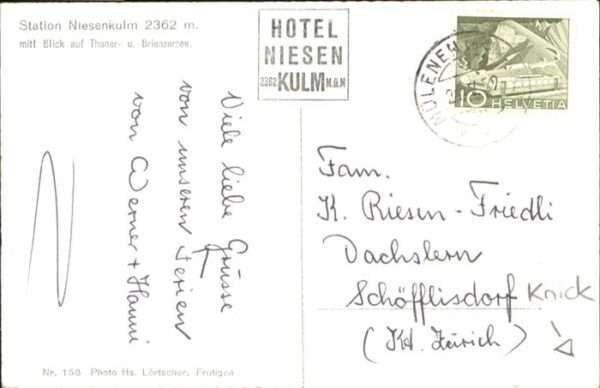 Station Niesenkulm 2362 m.
mit Blick auf Thuner- u. Brienzersee.
HOTEL
NIESEN
2362 KULM M.ü.M
MÜLENEN
10 HELVETIA
Viele liebe Grüsse
von unseren Ferien
von Werner + Hanni
Fam.
K. Riesen-Friedli
Dachslern
Schöfflisdorf Knick
(Kt. Zürich)
Nr. 158 Photo Hs. Lörtscher, Frutigen